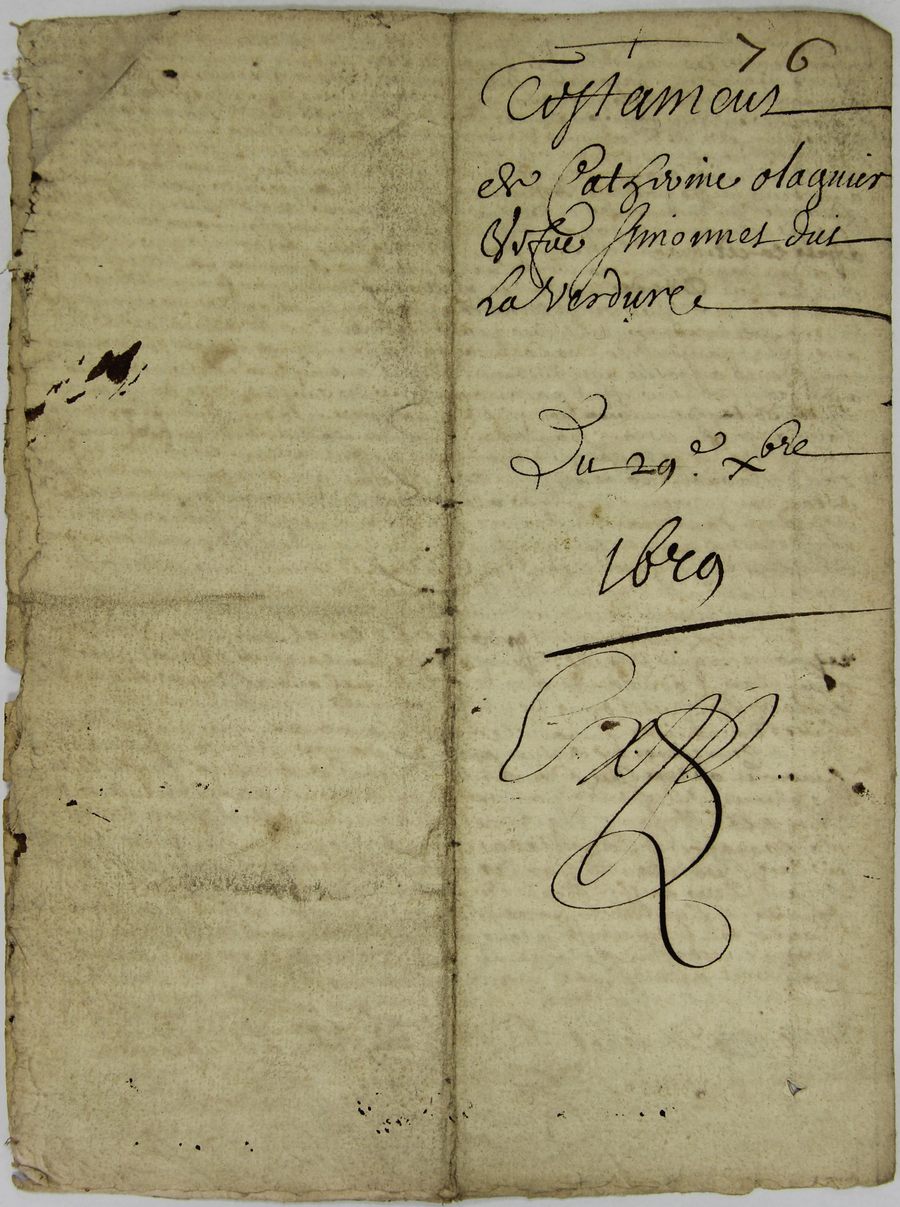 76
Testament
de Catherine olagnier
Vefue simonnet dit
La Verdure
Du 29e. xbre
1629